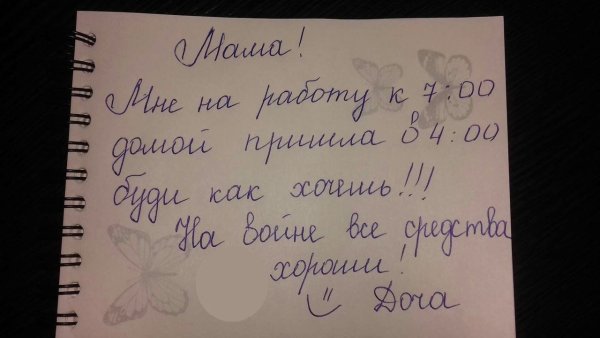 Мама!
Мне на работу к 7:00
домой пришла в 4:00
буди как хочешь!!!
На войне все средства
хороши!
Доча